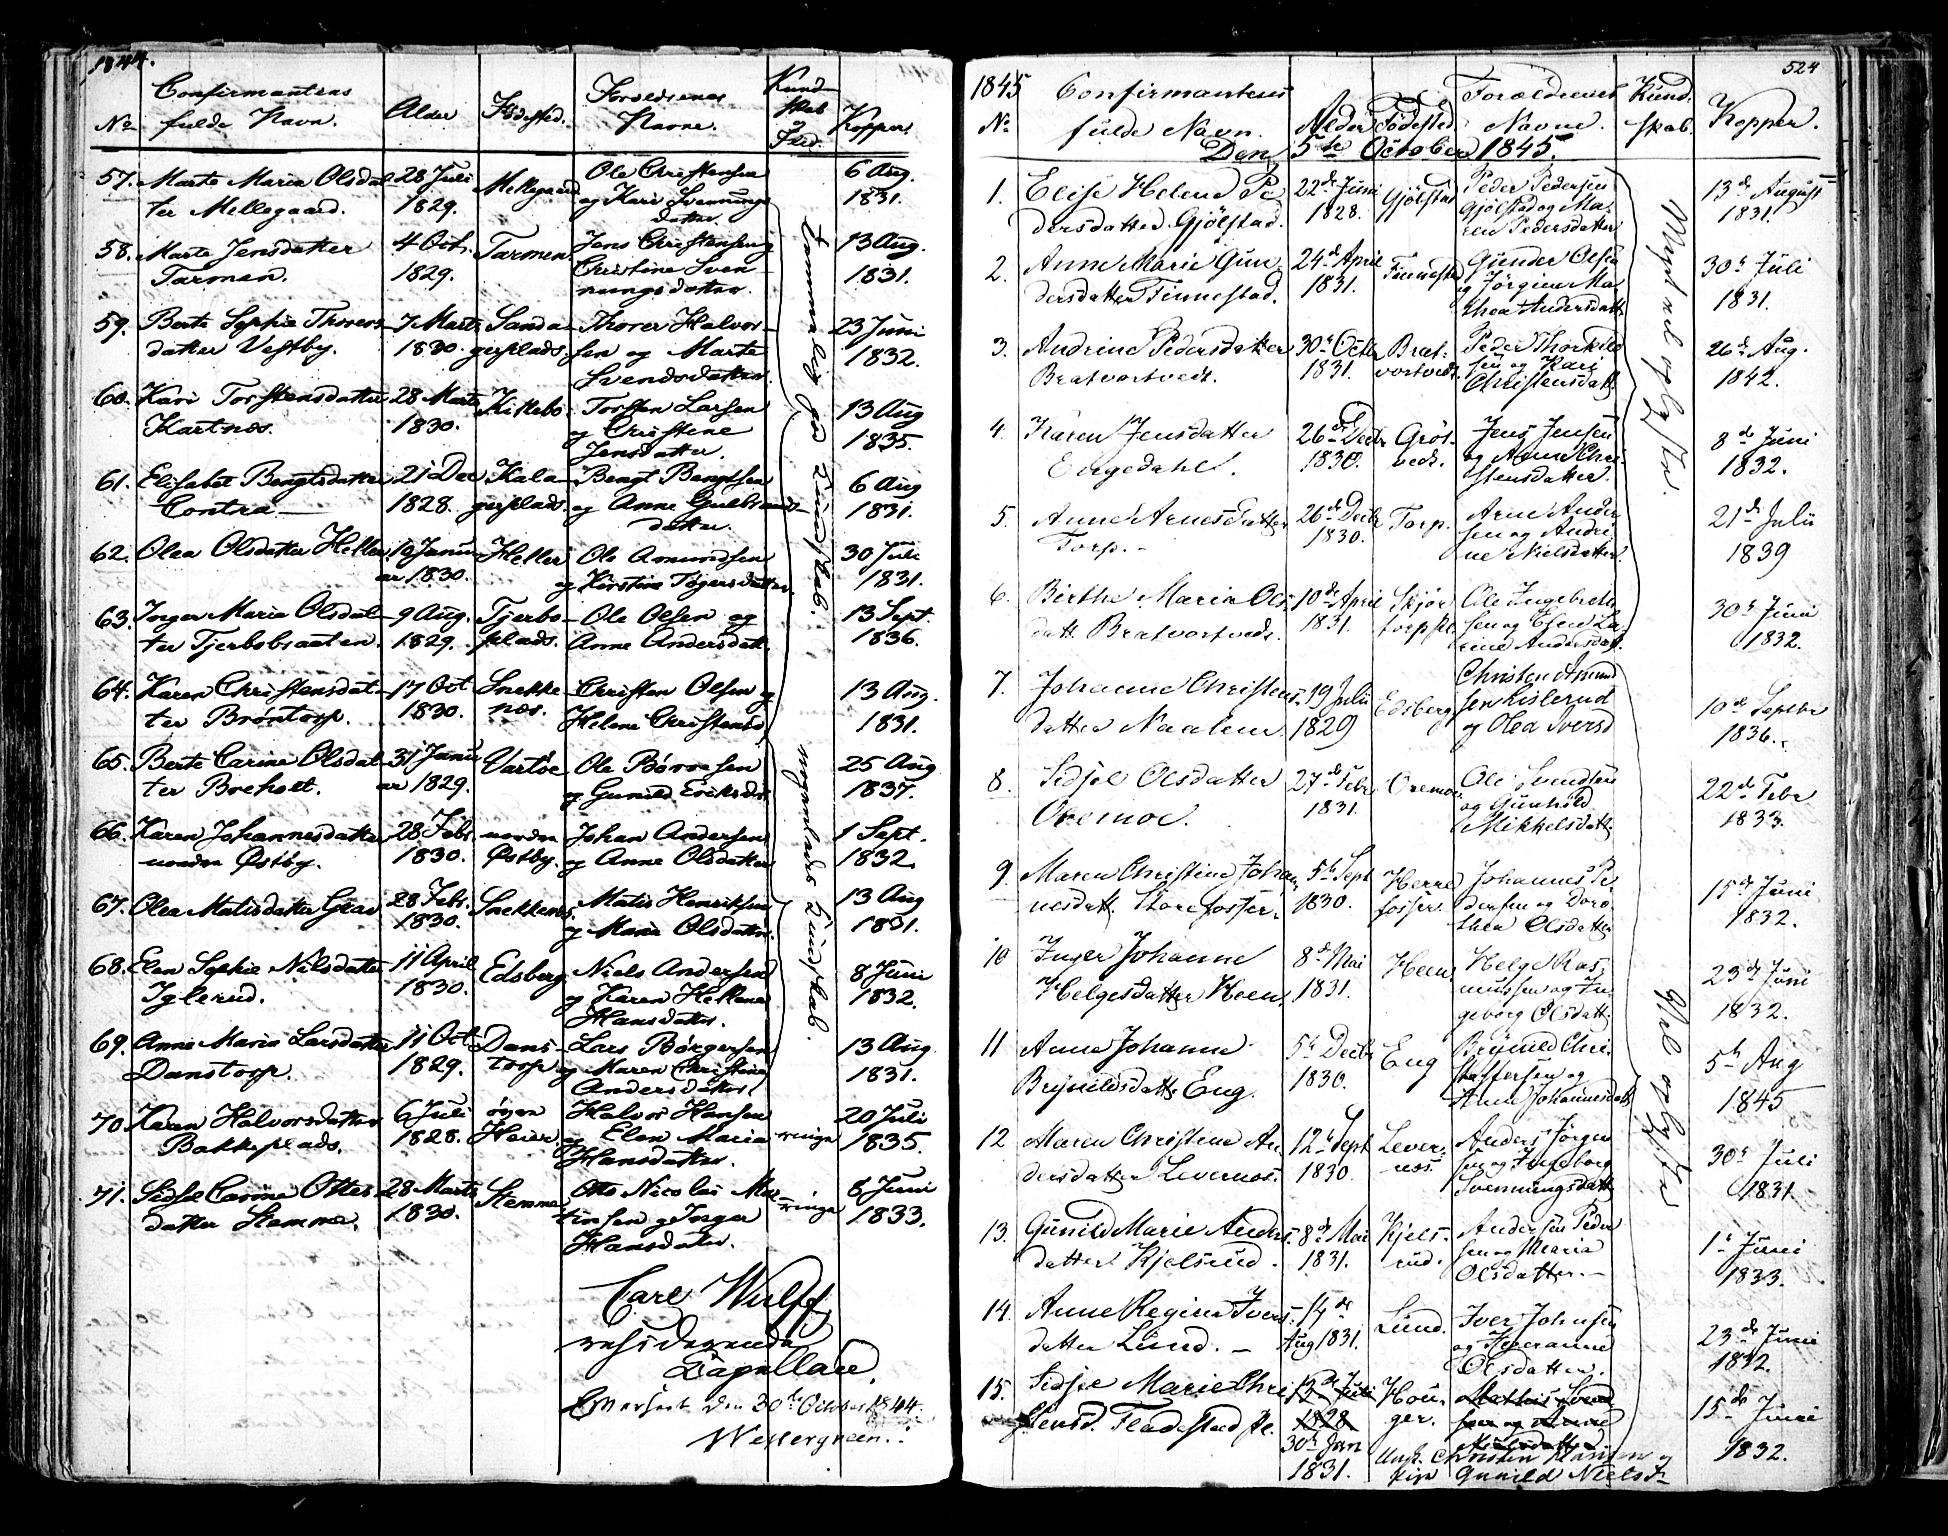 1844.
No
Confirmantens
fulde Navn.
Alder
Födested.
Forældrenes
Navne.
Kund-
skab
Kopper.
57. Marte Maria Olsdat-
ter Mellegaard.
28 Juli
1829.
Mellegaard
Ole Christensen
og Kari Svennungs-
datter
6 Aug.
1831.
58. Marte Jensdatter
Tarmen.
4 Oct.
1829.
Tarmen
Jens Christensen og
Christine Sven-
nungsdatter.
13 Aug.
1831.
59. Berte Sophie Thorers-
datter Vestby.
7 Marts
1830.
Sanda-
gerplads.
Thorer Halvor-
sen og Marte
Svendsdatter.
23 Juni
1832.
60. Kari Torstensdatter
Kartnæs.
28 Marts
1830.
Kikebo
Torsten Larsen
og Christine
Jensdatter.
13 Aug
1835.
61. Elisabet Bengtsdatter
Contra
21 Dec
1828.
Kala-
gerplads.
Bengt Bengtsen
og Anne Gulbrands-
datter.
6 Aug
1831.
62. Olea Olsdatter Heller
19 Janu-
ar 1830.
Heller
Ole Amundsen
og Kirstine Tøgersdatter
30 Juli
1831.
63. Inger Maria Olsdat-
ter Tjerbobraaten.
9 Aug.
1829.
Tjerbo-
plads.
Ole Olsen og
Anne Andersdatt.
13 Sept.
1836.
64. Karen Christensdat-
ter Bröntorp.
17 Oct
1830.
Snekke-
næs.
Christen Olsen og
Helene Christensd.
13 Aug.
1831.
65. Berte Carine Olsdat-
ter Breholt.
31 Janu-
ar 1829.
Vartöe
Ole Börresen
og Gunild Eriksdr.
25 Aug
1837.
66. Karen Johannesdatter
norden Østby.
28 Febr
1830.
norden
Østby.
Johan Andersen
og Anne Olsdatter
1 Sept.
1832.
67. Olea Matisdatter Grav
28 Febr.
1830.
Snekkenæs.
Matis Henriksen
og Maria Olsdatter.
13 Aug
1831.
68. Elen Sophie Nilsdatter
Iglerud.
11 April
1830.
Edsberg
Niels Andersen
og Karen Helena
Hansdatter.
8 Juni
1832.
69. Anne Maria Larsdatter
Danstorp.
11 Oct
1829.
Dans-
torp
Lars Börgersen
og Maren Christine
Andersdatter
13 Aug
1831.
70. Karen Halvorsdatter
Bakkeplads.
6 Juli
1828.
Heier.
Halvor Hansen
og Elen Maria
Hansdatter.
ringe
20 Juli
1835.
71. Sidse Carine Ottes-
datter Stemme.
28 Marts
1830.
Stemme
Otto Nicolai Mor-
tinsen og Inger
Hansdatter.
ringe
8 Juni
1833.
temmelig god Kundskab.
nogenlunde Kundskab.
Carl Wulff
residerende
Capellan.
den 30te October 1844.
Westergreen.
524
1845
No
Confirmantens
fulde Navn.
Alder
Födested
Forældrenes
Navne.
Kund-
skab.
Kopper.
Den 5te October 1845.
1. Elise Helene Pe-
dersdatter Gjölstad.
22de Juni
1828.
Gjölstad
Peder Pedersen
Gjölstad og Ma-
ren Pedersdatter
13de August
1831.
2. Anne Marie Gun-
dersdatter Finnestad.
24de April
1831.
Finnestad
Gunder Olsen
og Jörgine Ma-
thea Andersdatt.
30te Juli
1831.
3. Andrine Pedersdatter
Bratvortvedt.
30te Octbr
1831.
Brat-
vortvedt.
Peder Thorkild-
sen og Kari
Christensdatt.
26de Aug.
1842.
4. Karen Jensdatter
Engedahl.
26de Decbr
1830.
Grös-
vedt.
Jens Jensen
og Anne Chri-
stensdatter.
8de Juni
1832.
5. Anne Arnesdatter
Torp.
26de Decbr
1830.
Torp.
Arne Ander-
sen og Andri-
ne Nielsdatter.
21de Julii
1839
6. Birthe Maria Ols-
datt. Bratvortvedt.
10de April
1831.
Skjör-
torp pl.
Ole Ingebret-
sen og Elen La-
rine Andersdatt.
30te Juni
1832.
7. Johanne Christens-
datter Naalem.
19 Julii
1829
Edsberg
Christen Amund-
sen Lislerud
og Olea Iversd
10de Septbr
1836.
8. Sidsel Olsdatter
Oremoe.
27de Febr
1831.
Oremoe
Ole Svendsen
og Gunhild
Mikkelsdatt.
22de Febr
1833.
9. Maren Christine Johan-
nesdatt. Storefosser.
5te Sept
1830.
Herre-
fosser.
Johannes Pe-
dersen og Doro-
thea Olsdatter
15de Juni
1832.
10 Inger Johanne
Helgesdatter Heen.
8de Mai
1831.
Heen
Helge Ras-
mussen og In-
geborg Olsdatt.
23de Juni
1832.
11 Anne Johanne
Brynildsdatt. Eng.
5te Decbr
1830.
Eng
Brynild Chri-
stoffersen og
Anne Johannesdatt.
5te Aug
1845
12 Maren Christine An-
dersdatter Levernæs.
12te Sept
1830.
Lever-
næs.
Anders Jörgen-
sen og Ingeborg
Svennungsdatt.
30te Juli
1831.
13. Gunild Marie Anders-
datter Kjelsrud.
8de Mai
1831.
Kjels-
rud.
Anders Peder-
sen og Maria
Olsdatter.
1te Juni
1833.
14. Anne Regine Ivers-
datter Lund.
14de
Aug 1831.
Lund.
Iver Johnsen
og Peperanne
Olsdatter.
23de Juni
1832.
15. Sidsel Marie Chri-
stensd. Fladestad pl.
13de Juli
1828
30te Jan
1831.
Hou-
ger.
Mathis Svend-
sen og Anne
Nielsdatter
Christen Hansen og
Gunild Nielsd.
15de Juni
1832.
Meget vel oplyst.
Vel oplyst